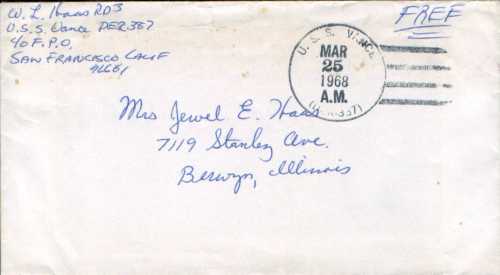 W. L. Haas RD3
U.S.S. Vance DER387
℅ F.P.O.
SAN FRANCISCO CALIF
96661
FREE
U. S. S. VANCE
MAR
25
1968
A.M.
(DER-387)
Mrs Jewel E. Haas
7119 Stanley Ave.
Berwyn, Illinois